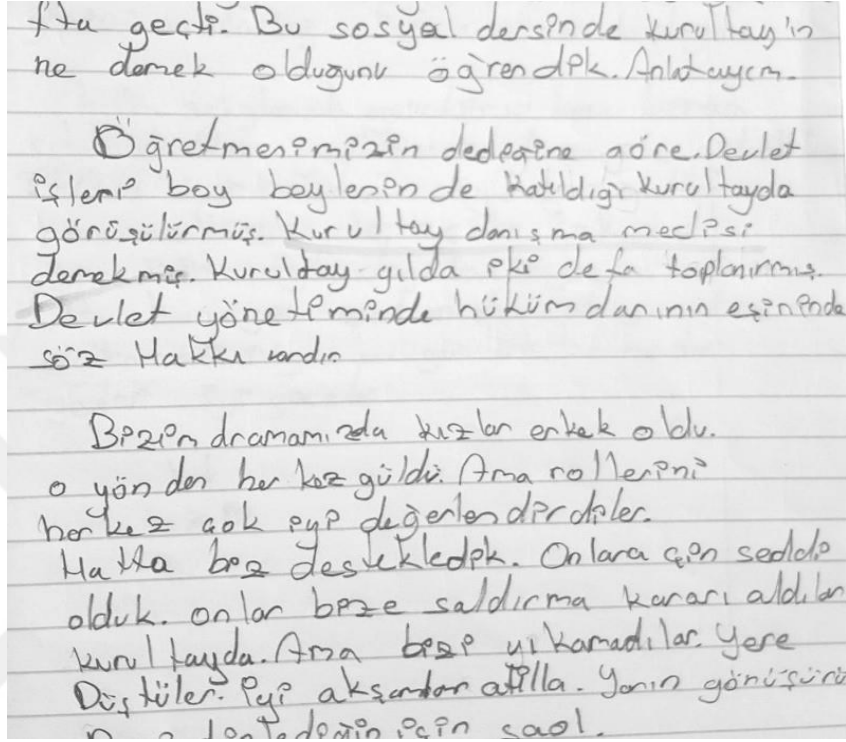 fta geçti. Bu sosyal dersinde kurultay'ın
ne demek olduğunu öğrendik. Anlatayım.
Öğretmenimizin dedeğine göre. Devlet
işleri boy beylerin de katıldığı kurultayda
görüşülürmüş. Kurultay danışma meclisi
demekmiş. Kurultay yılda iki defa toplanırmış.
Devlet yönetiminde hükümdarının eşininde
söz Hakkı vardır
Bizim dramamızda kızlar erkek oldu.
o yönden her kez güldü. Ama rollerini
her kez çok iyi değerlendirdiler.
Hatta biz destekledik. Onlara çin seddi
olduk. onlar bize saldırma kararı aldılar
kurultayda. Ama bizi yıkamadılar. Yere
Düştüler. iyi akşamlar atilla. Yarın görüşürü
için saol.